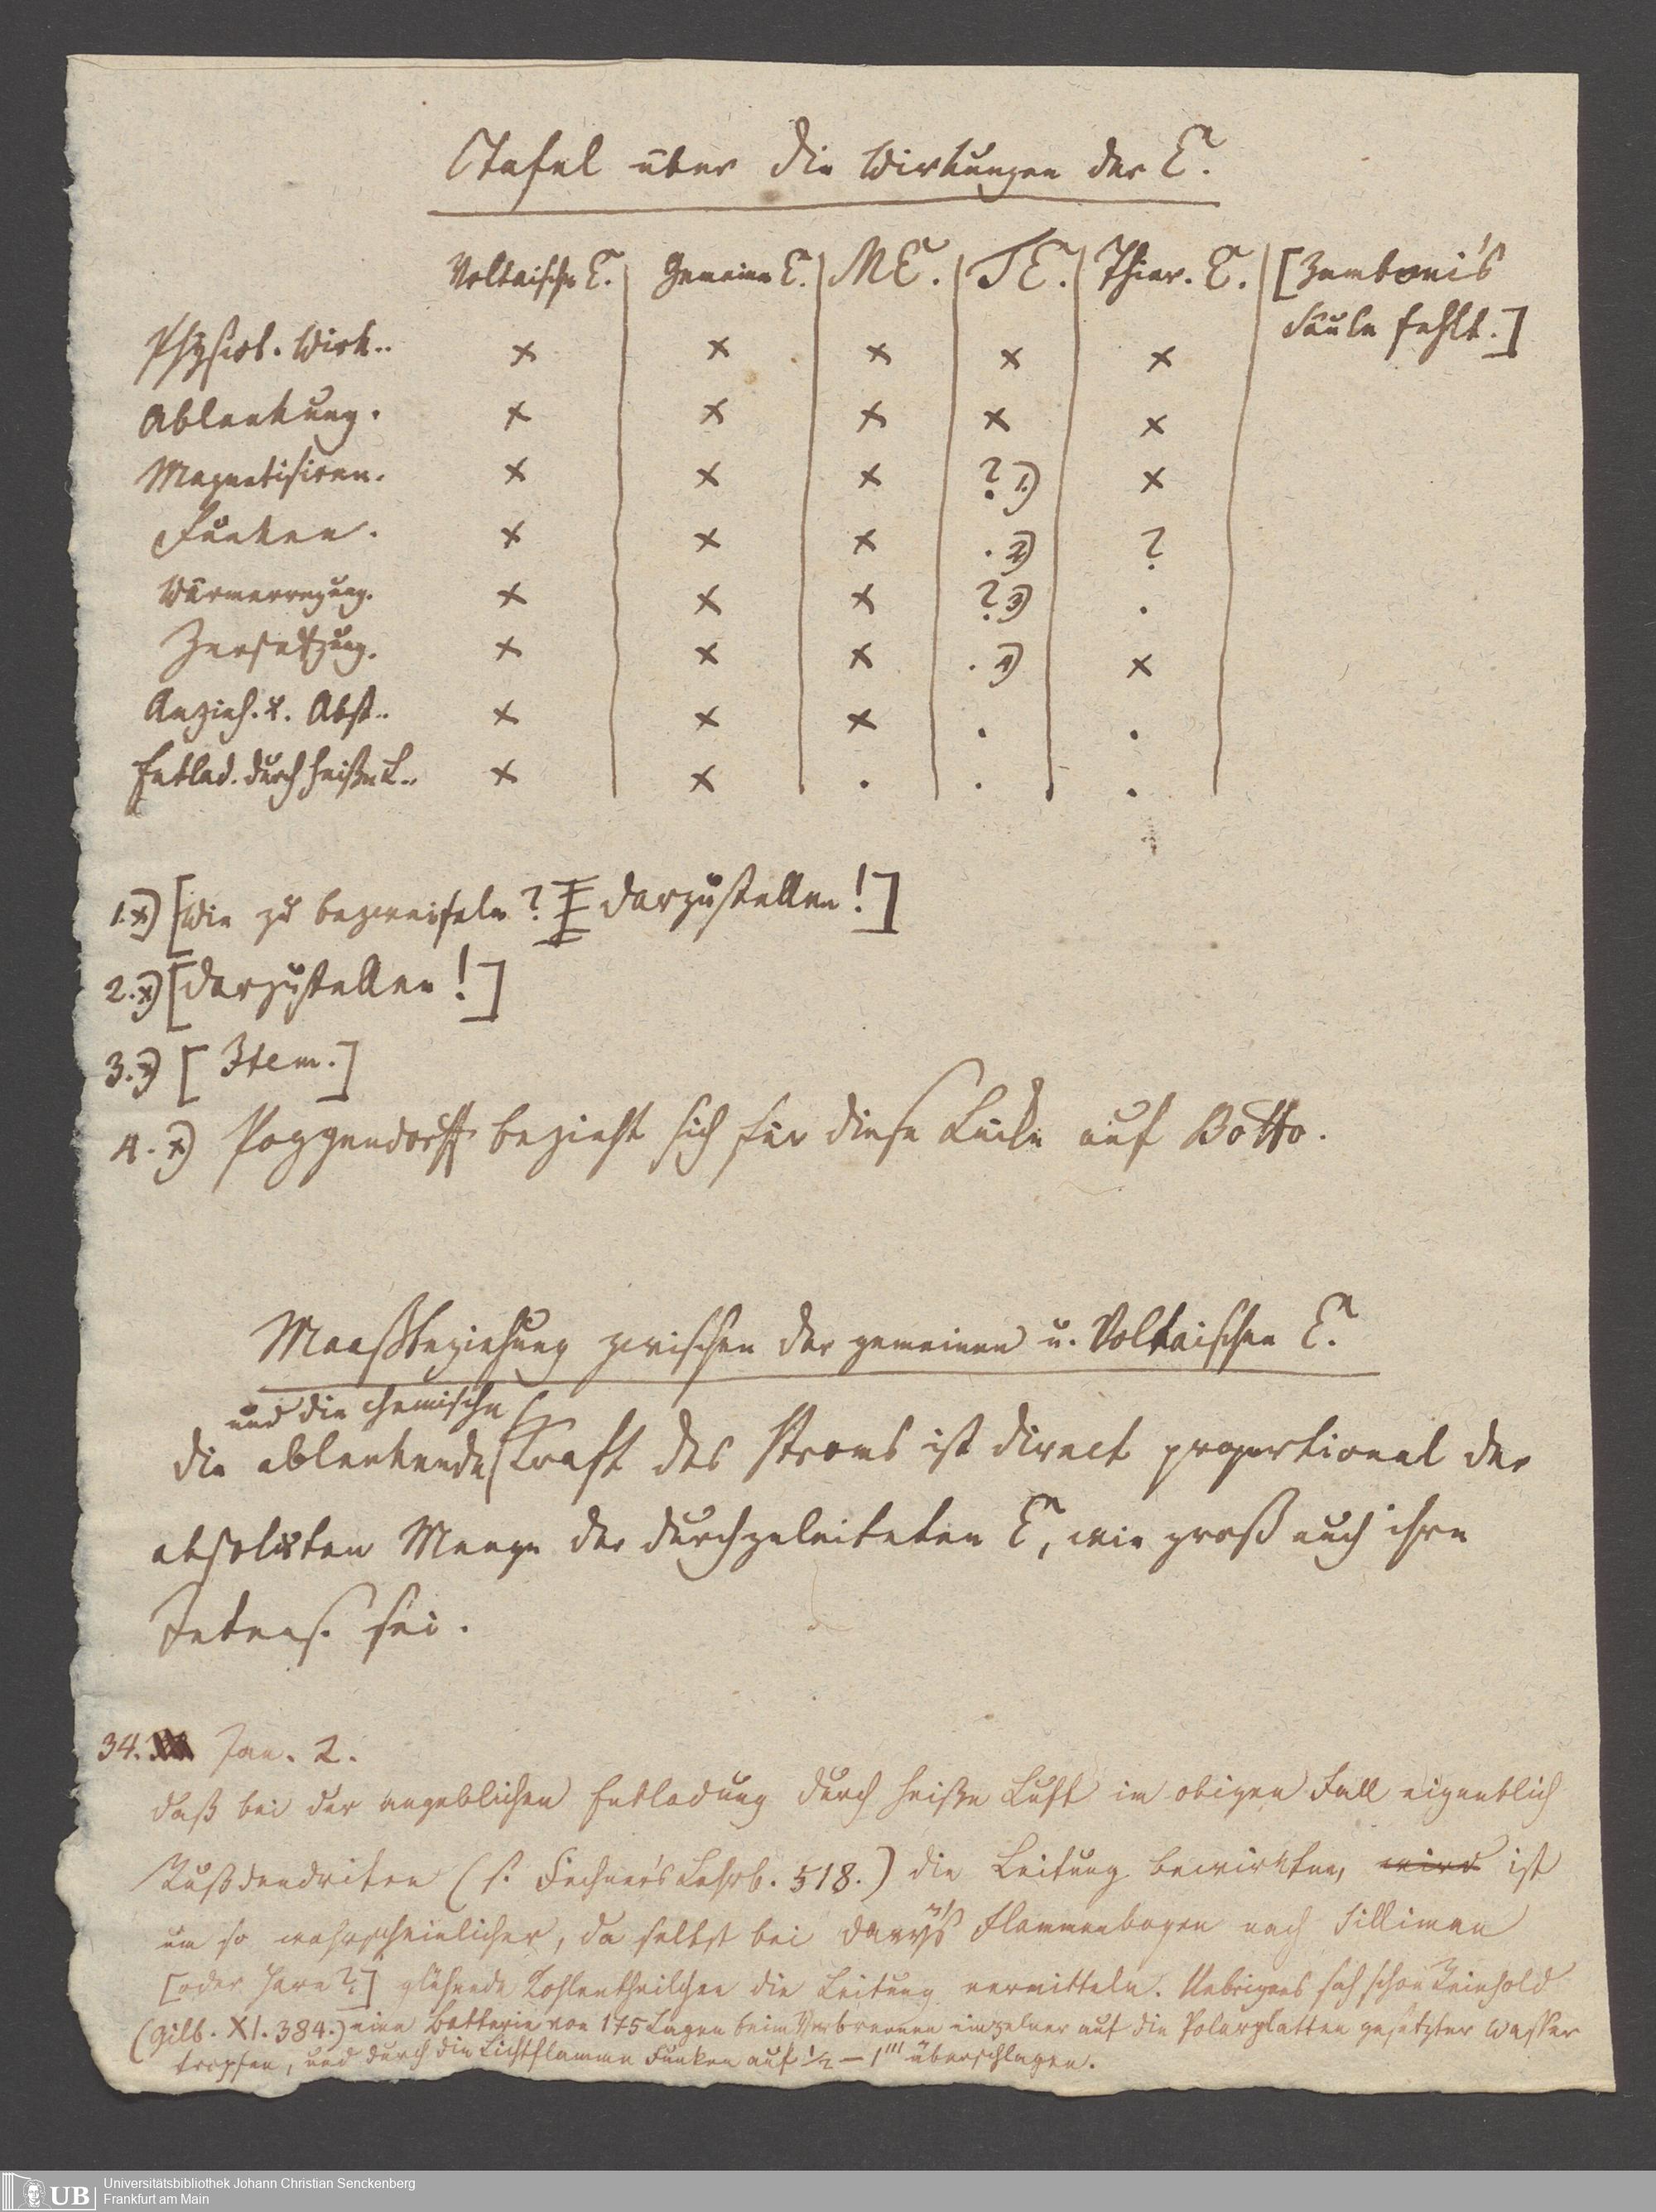 Tafel über die Wirkungen der E.
Voltaische E. | Gemeine E. | ME. | TE. | Thier. E. | [Zamboni's
Säule fehlt.]
Physiol. Wirk.. × × × × ×
Ablenkung. × × × × ×
Magnetisiren. × × × ? 1) ×
Funken. × × × . 2) ?
Wärmerregung. × × × ? 3) .
Zersetzung. × × × . 4) ×
Anzieh. u. Abst.. × × × . .
Entlad. durch heiße L.. × × . . .
1.×) [Wie zu bezweifeln? darzustellen!]
2.×) [darzustellen!]
3.×) [Item.]
4.×) Poggendorff bezieht sich für diese Lücke auf Botto.
Maaßbeziehung zwischen der gemeinen u. Voltaischen E.
und die chemische
die ablenkende Kraft des Stroms ist direct proportional der
absoluten Menge der durchgeleiteten E, wie groß auch ihre
Intens. sei.
34. Jan. 2.
daß bei der angeblichen Entladung durch heiße Luft im obigen Fall eigentlich
Rußdendriten (s. Fechner's Lehrb. 518.) die Leitung bewirkten, wird ist
um so wahrscheinlicher, da selbst bei Davy's Flammenbogen nach Silliman
[oder Hare?] glühende Kohlentheilchen die Leitung vermitteln. Uebrigens sah schon Reinhold
(Gilb. XI. 384.) eine Batterie von 175 Lagen beim Verbrennen einzelner auf die Polarplatten gesetzter Wasser
tropfen, und durch die Lichtflamme Funken auf ½ – 1''' überschlagen.
UB
Universitätsbibliothek Johann Christian Senckenberg
Frankfurt am Main